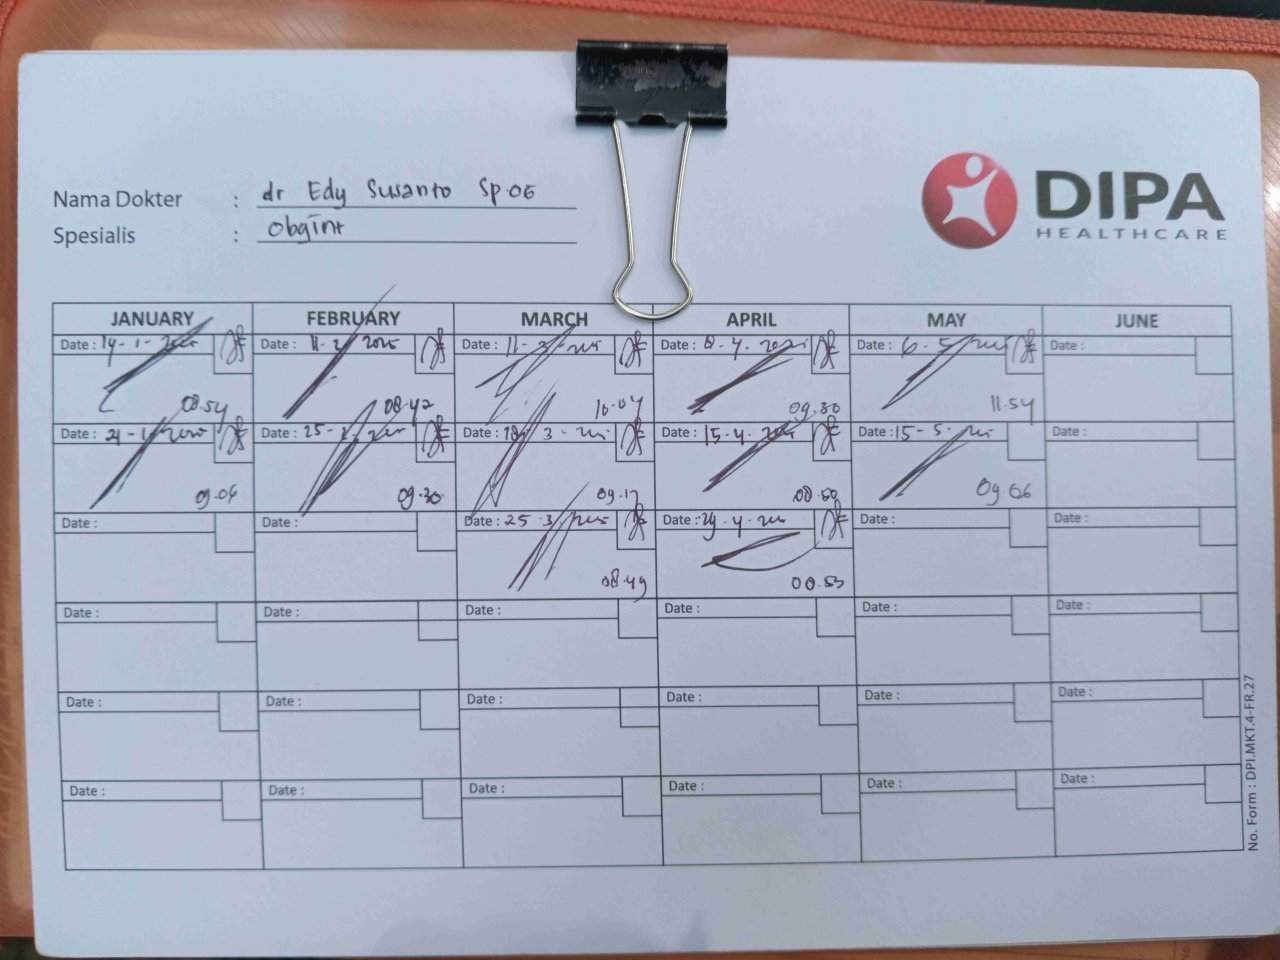 Nama Dokter : dr Edy Susanto Sp.OG
Spesialis : Obgint
DIPA
HEALTHCARE
JANUARY FEBRUARY MARCH APRIL MAY JUNE
Date : 14-1-2025 Date : 11-2-2025 Date : 11-3-2025 Date : 8-4-2025 Date : 6-5-2025 Date :
08.54 08.42 10.04 09.30 11.54
Date : 21-1-2025 Date : 25-2-2025 Date : 18-3-2025 Date : 15-4-2025 Date : 15-5-2025 Date :
09.04 09.30 09.17 08.50 09.06
Date : Date : Date : 25.3.2025 Date : 29-4-2025 Date : Date :
08.49 08.53
Date : Date : Date : Date : Date : Date :
Date : Date : Date : Date : Date : Date :
Date : Date : Date : Date : Date : Date :
No. Form : DPI.MKT.4-FR.27